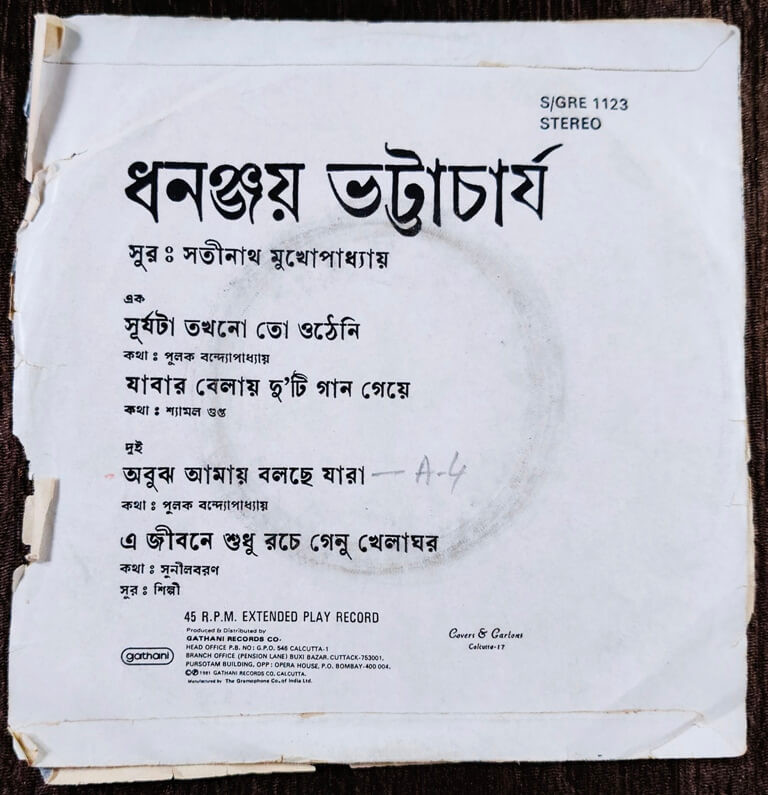 S/GRE 1123
STEREO
ধনঞ্জয় ভট্টাচার্য
সুর : সতীনাথ মুখোপাধ্যায়
এক
সূর্যটা তখনো তো ওঠেনি
কথা : পুলক বন্দ্যোপাধ্যায়
যাবার বেলায় দু'টি গান গেয়ে
কথা : শ্যামল গুপ্ত
দুই
অবুঝ আমায় বলছে যারা — A-4
কথা : পুলক বন্দ্যোপাধ্যায়
এ জীবনে শুধু রচে গেনু খেলাঘর
কথা : সুনীলবরণ
সুর : শিল্পী
45 R.P.M. EXTENDED PLAY RECORD
Produced & Distributed by
GATHANI RECORDS CO.
HEAD OFFICE P.B. NO: G.P.O. 546 CALCUTTA-1
BRANCH OFFICE (PENSION LANE) BUXI BAZAR, CUTTACK-753001.
PURSOTAM BUILDING, OPP: OPERA HOUSE, P.O. BOMBAY-400 004.
©℗ 1981 GATHANI RECORDS CO. CALCUTTA.
Manufactured by The Gramophone Co. of India Ltd.
gathani
Covers & Cartons
Calcutta-17